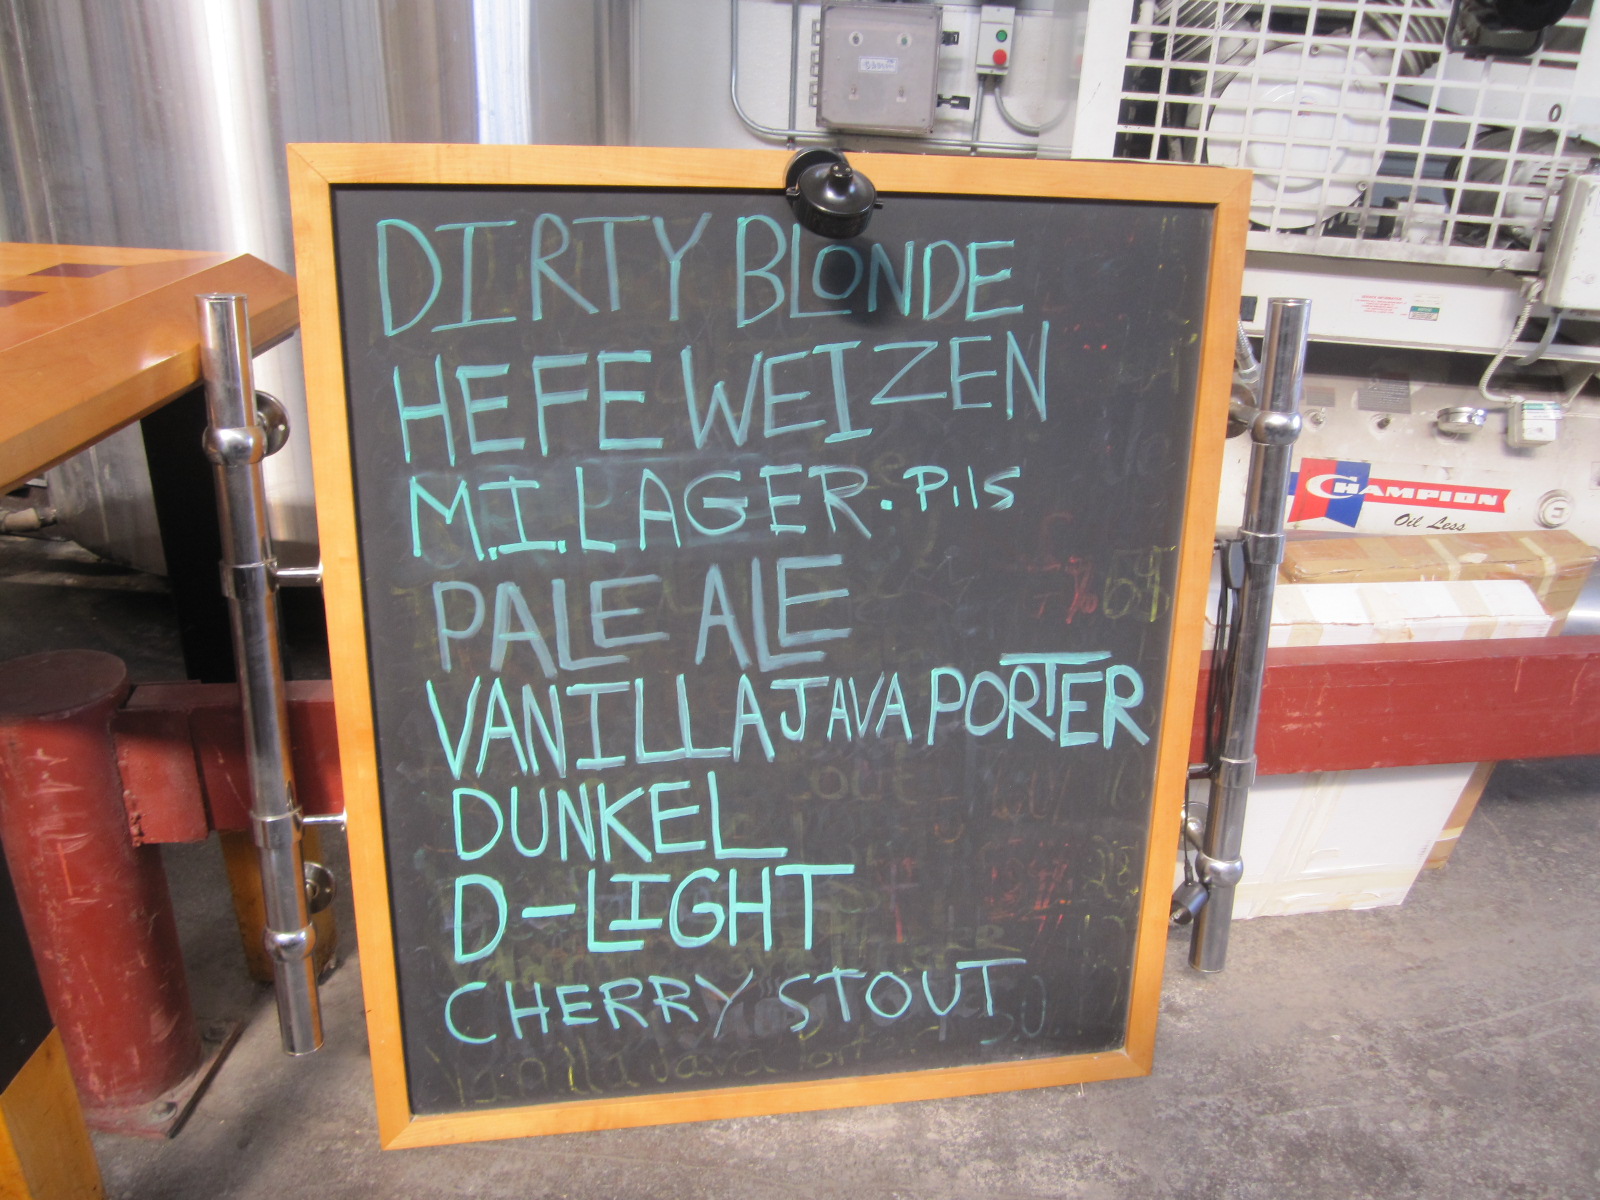 DIRTY BLONDE
HEFEWEIZEN
M.I. LAGER. Pils
PALE ALE
VANILLA JAVA PORTER
DUNKEL
D-LIGHT
CHERRY STOUT
Vanilla Java Porter
CHAMPION
Oil Less